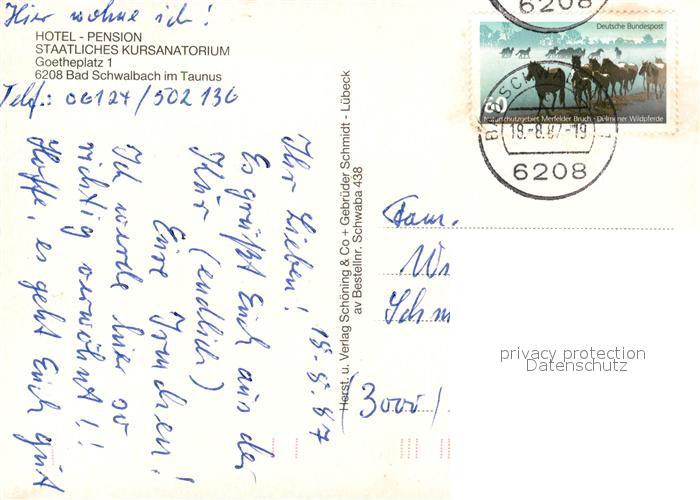 Hier wohne ich!
HOTEL - PENSION
STAATLICHES KURSANATORIUM
Goetheplatz 1
6208 Bad Schwalbach im Taunus
Telf.: 06124/502 136
15.8.87
Ihr Lieben!
Es grüßt Euch aus der
Kur (endlich)
Eure
Ich werde hier so
richtig verwöhnt!!
Hoffe, es geht Euch gut
Herst. u. Verlag Schöning & Co + Gebrüder Schmidt - Lübeck
av Bestellnr. Schwaba 438
6208
Deutsche Bundespost
80
Naturschutzgebiet Merfelder Bruch · Dülmener Wildpferde
18.-8.87-19
6208
Fam.
(3000/
privacy protection
Datenschutz